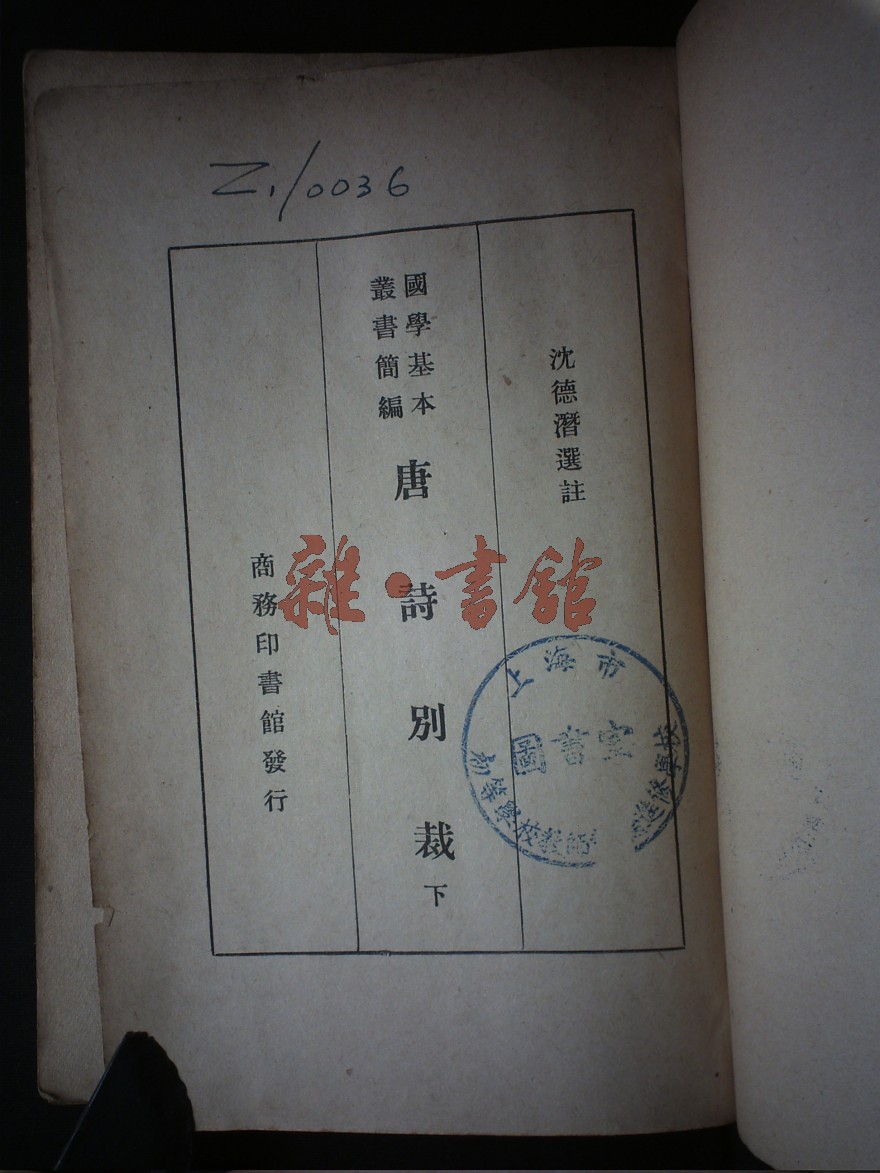 Z1/0036
沈德潛選註
國學基本
叢書簡編
唐詩別裁 下
商務印書館發行
雜·書館
上海市
圖書室
初等學校教師